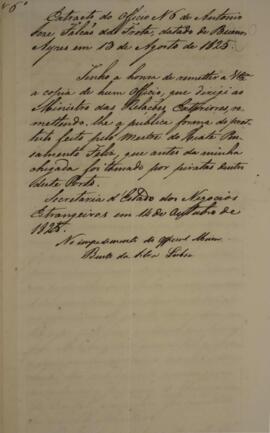 Nº 6º
Extracto do Officio Nº 6 de Antonio
Jose Falcão da Frota, datado de Buenos
Ayres em 13 de Agosto de 1825.
Tenho a honra de remetter a VExª
a copia de hum Officio, que dirigi ao
Ministro das Relações Exteriores, re
mettendo-lhe a publica forma do pro
testo feito pelo Mestre do Hiate Pen
samento Feliz, que antes da minha
chegada foi tomado por piratas dentro
deste Porto.
Secretaria d'Estado dos Negocios
Estrangeiros em 14 de Outubro de
1825.
No impedimento do Official Maior
Bento da Silva Lisboa